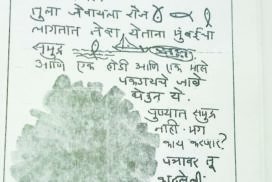 तुला जेवायला रोज
लागतात नेव्हा येताना मुंबईचा
समुद्र
आणि एक होडी आणि एक मासे
पकडायचे जाळे
घेऊन ये.
पुण्यात समुद्र
नाही. मग
काय करणार?
पत्रावर तू